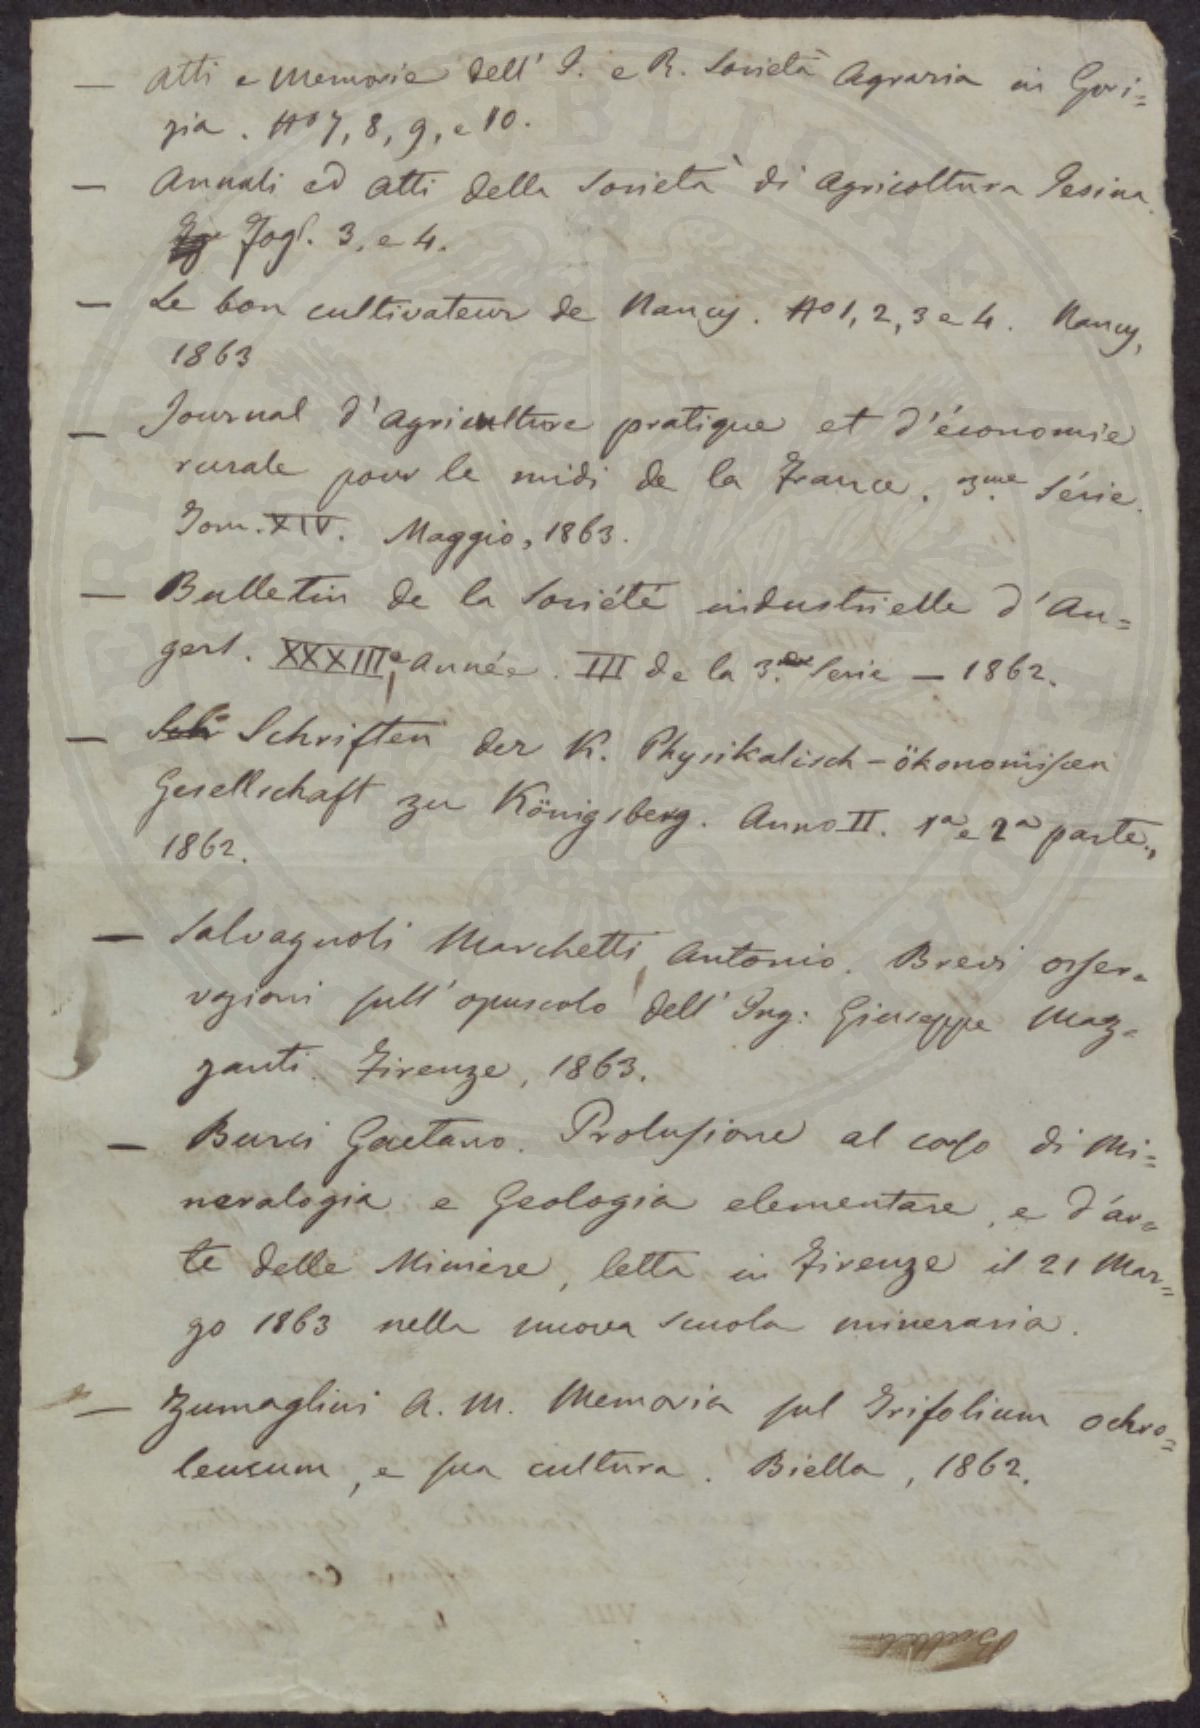 — Atti e Memorie dell' I. e R. Società Agraria in Gori=
zia. No 7, 8, 9, e 10.
— Annali ed Atti della Società di Agricoltura Jesina.
Fogl. 3. e 4.
— Le bon cultivateur de Nancy. No 1, 2, 3 e 4. Nancy,
1863
— Journal d'Agriculture pratique et d'économie
rurale pour le midi de la France. 3.me Série.
Tom. XIV. Maggio, 1863.
— Bulletin de la Société industrielle d'An=
gers. XXXIIIe Année. III de la 3. Serie — 1862.
— Sch Schriften der K. Physikalisch-ökonomiscen
Gesellschaft zu Königsberg. Anno II. 1a e 2a parte.,
1862.
— Salvagnoli Marchetti Antonio. Brevi osser=
vazioni sull' opuscolo dell' Ing: Giuseppe Maz=
zanti. Firenze, 1863.
— Burci Gaetano. Prolusione al corso di Mi=
neralogia e Geologia elementare, e d'ar=
te delle Miniere, letta in Firenze il 21 Mar=
zo 1863 nella nuova scuola mineraria.
— Zumaglini A. M. Memoria sul Trifolium ochro=
leucum, e sua cultura. Biella, 1862.